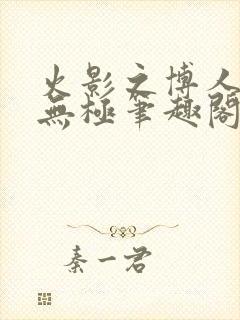 火影之博人
無極筆趣閣
秦一君